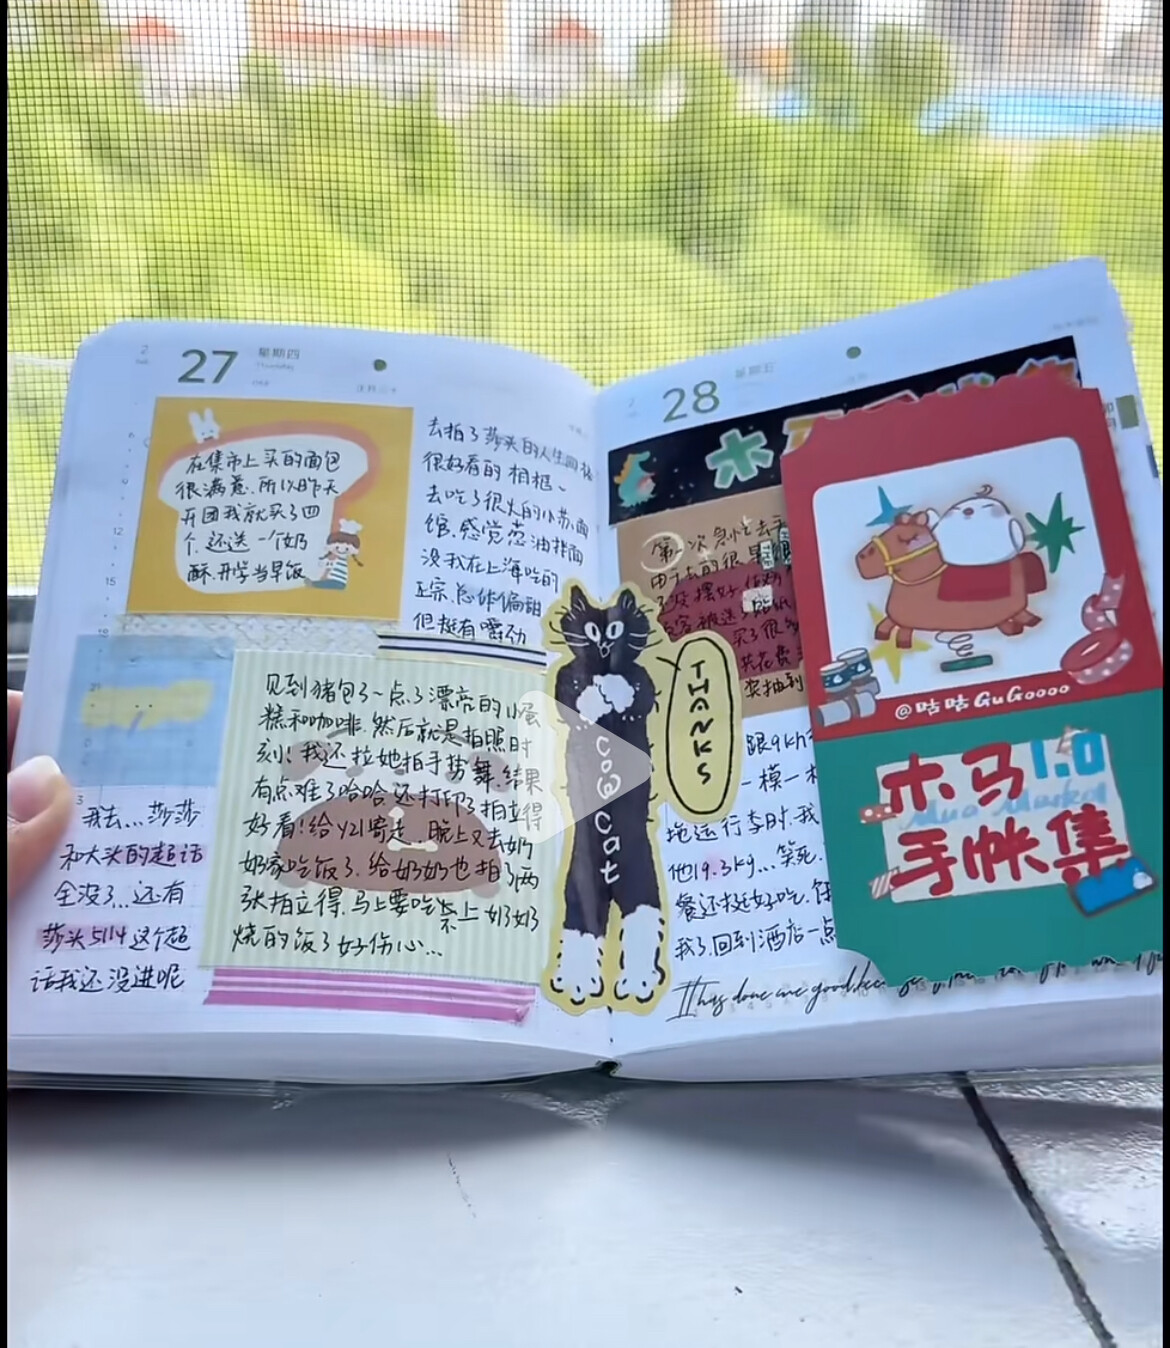 27
星期四
Thursday
在集市上买的面包
很满意.所以昨天
开团我就买了四
个.还送一个奶
酥.开学当早饭
去拍了莎头的人生四格
很好看的相框~
去吃了很火的小苏面
馆.感觉葱油拌面
没我在上海吃的
正宗.总体偏甜
但挺有嚼劲
见到猪包了~点了漂亮的小蛋
糕和咖啡.然后就是拍照时
刻!我还拉她拍手势舞.结果
有点难了哈哈.还打印了拍立得
好看!给y21寄走.晚上又去奶
奶家吃饭了.给奶奶也拍了两
张拍立得.马上要吃不上奶奶
烧的饭了好伤心...
我去...莎莎
和大头的超话
全没了...还有
莎头5114这个超
话我还没进呢
cow cat
THANKS
28
星期五
木
第一次急忙去
由于去的很早
了没摆好
被送了贴纸
买了很
共花费
奖抽到
跟9kh
一模一
地运行李时.我
他19.3kg...笑死.
餐还挺好吃.
我了.回到酒店一点
It has done me good
@咕咕GuGoooo
木马1.0
Mua Market
手帐集